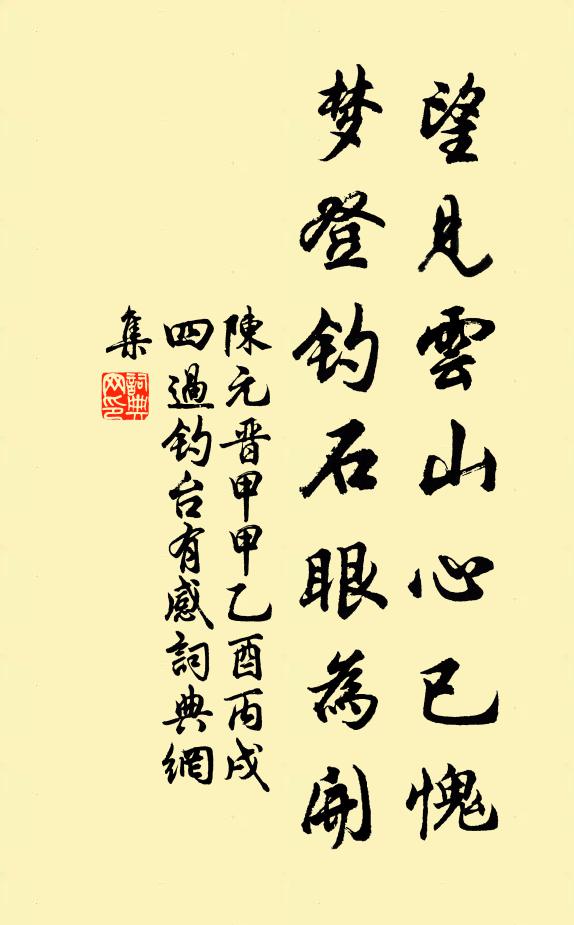 望見雲山心已愧
梦登钓石眼為開
陳元晋甲甲乙酉丙戌
四過钓台有感詞典網
集
詞典网印